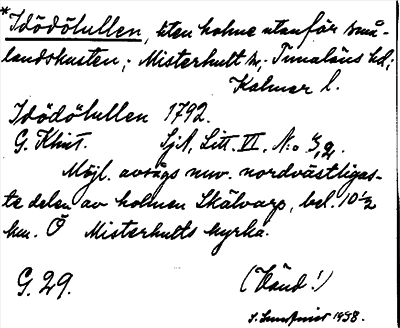 *Idödölullen, liten holme utanför små-
landskusten; Misterhult sn; Tunaläns hd;
Kalmar l.
Idödölullen 1792.
G. Klint. Sjk, Litt. VI, N:o
Möjl. avsågs nuv. nordvästligas-
te delen av holmen Skälvarp, bel. 10½
km. Ö Misterhults kyrka.
G. 29. (Vänd!)
1958.